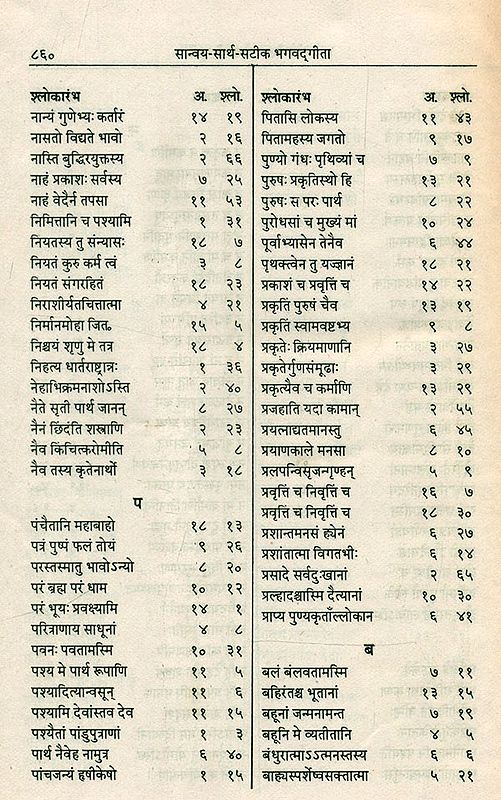 ८६० सान्वय-सार्थ-सटीक भगवद्गीता
श्लोकारंभ अ. श्लो.
नान्यं गुणेभ्यः कर्तारं १४ १९
नासतो विद्यते भावो २ १६
नास्ति बुद्धिरयुक्तस्य २ ६६
नाहं प्रकाशः सर्वस्य ७ २५
नाहं वेदैर्न तपसा ११ ५३
निमित्तानि च पश्यामि १ ३१
नियतस्य तु संन्यासः १८ ७
नियतं कुरु कर्म त्वं ३ ८
नियतं संगरहितं १८ २३
निराशीर्यतचित्तात्मा ४ २१
निर्मानमोहा जित. १५ ५
निश्चयं शृणु मे तत्र १८ ४
निहत्य धार्तराष्ट्रान्नः १ ३६
नेहाभिक्रमनाशोऽस्ति २ ४०
नैते सृती पार्थ जानन् ८ २७
नैनं छिंदंति शस्त्राणि २ २३
नैव किंचित्करोमीति ५ ८
नैव तस्य कृतेनार्थो ३ १८
प
पंचैतानि महाबाहो १८ १३
पत्रं पुष्पं फलं तोयं ९ २६
परस्तस्मातु भावोऽन्यो ८ २०
परं ब्रह्म परं धाम १० १२
परं भूयः प्रवक्ष्यामि १४ १
परित्राणाय साधूनां ४ ८
पवनः पवतामस्मि १० ३१
पश्य मे पार्थ रूपाणि ११ ५
पश्यादित्यान्वसून् ११ ६
पश्यामि देवांस्तव देव ११ १५
पश्यैतां पांडुपुत्राणां १ ३
पार्थ नैवेह नामुत्र ६ ४०
पांचजन्यं हृषीकेषो १ १५
श्लोकारंभ अ. श्लो.
पितासि लोकस्य ११ ४३
पितामहस्य जगतो ९ १७
पुण्यो गंधः पृथिव्यां च ७ ९
पुरुषः प्रकृतिस्थो हि १३ २१
पुरुषः स परः पार्थ ८ २२
पुरोधसां च मुख्यं मां १० २४
पूर्वाभ्यासेन तेनैव ६ ४४
पृथक्त्वेन तु यज्ज्ञानं १८ २१
प्रकाशं च प्रवृत्तिं च १४ २२
प्रकृतिं पुरुषं चैव १३ १९
प्रकृतिं स्वामवष्टभ्य ९ ८
प्रकृतेः क्रियमाणानि ३ २७
प्रकृतेर्गुणसंमूढाः ३ २९
प्रकृत्यैव च कर्माणि १३ २९
प्रजहाति यदा कामान् २ ५५
प्रयत्नाद्यतमानस्तु ६ ४५
प्रयाणकाले मनसा ८ १०
प्रलपन्विसृजन्गृण्हन् ५ ९
प्रवृत्तिं च निवृत्तिं च १६ ७
प्रवृत्तिं च निवृत्तिं च १८ ३०
प्रशान्तमनसं ह्येनं ६ २७
प्रशांतात्मा विगतभीः ६ १४
प्रसादे सर्वदुःखानां २ ६५
प्रल्हादश्चास्मि दैत्यानां १० ३०
प्राप्य पुण्यकृताँल्लोकान ६ ४१
ब
बलं बंलवतामस्मि ७ ११
बहिरंतश्च भूतानां १३ १५
बहूनां जन्मनामन्त ७ १९
बहूनि मे व्यतीतानि ४ ५
बंधुरात्माऽऽत्मनस्तस्य ६ ६
बाह्यस्पर्शेष्वसक्तात्मा ५ २१